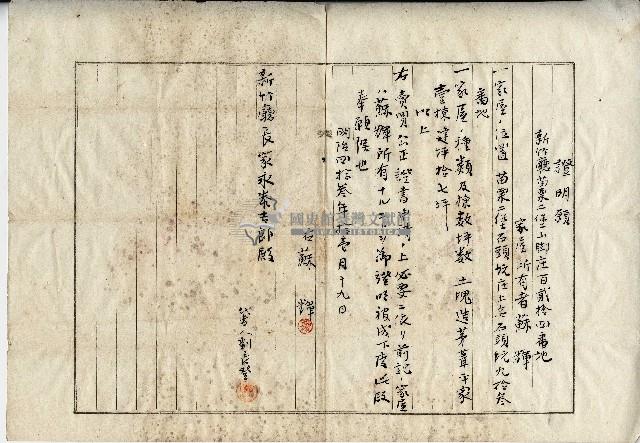 證明願
新竹廳苗栗二堡山脚庄百貳拾四番地
家屋所有者 蘇輝
一 家屋ノ位置 苗栗二堡石頭坑庄土名石頭坑九拾叁
番地
一 家屋ノ種類及棟數坪數 土塊造茅葺平家
壹棟建坪拾七坪
以上
右賣買公正證書 上必要ニ依リ前記ノ家屋
ハ蘇輝所有 御證明被成下度此段
奉願候也
明治四拾叁年壹月十九日
右 蘇輝
新竹廳長家永泰吉郎殿
國史館臺灣文獻館